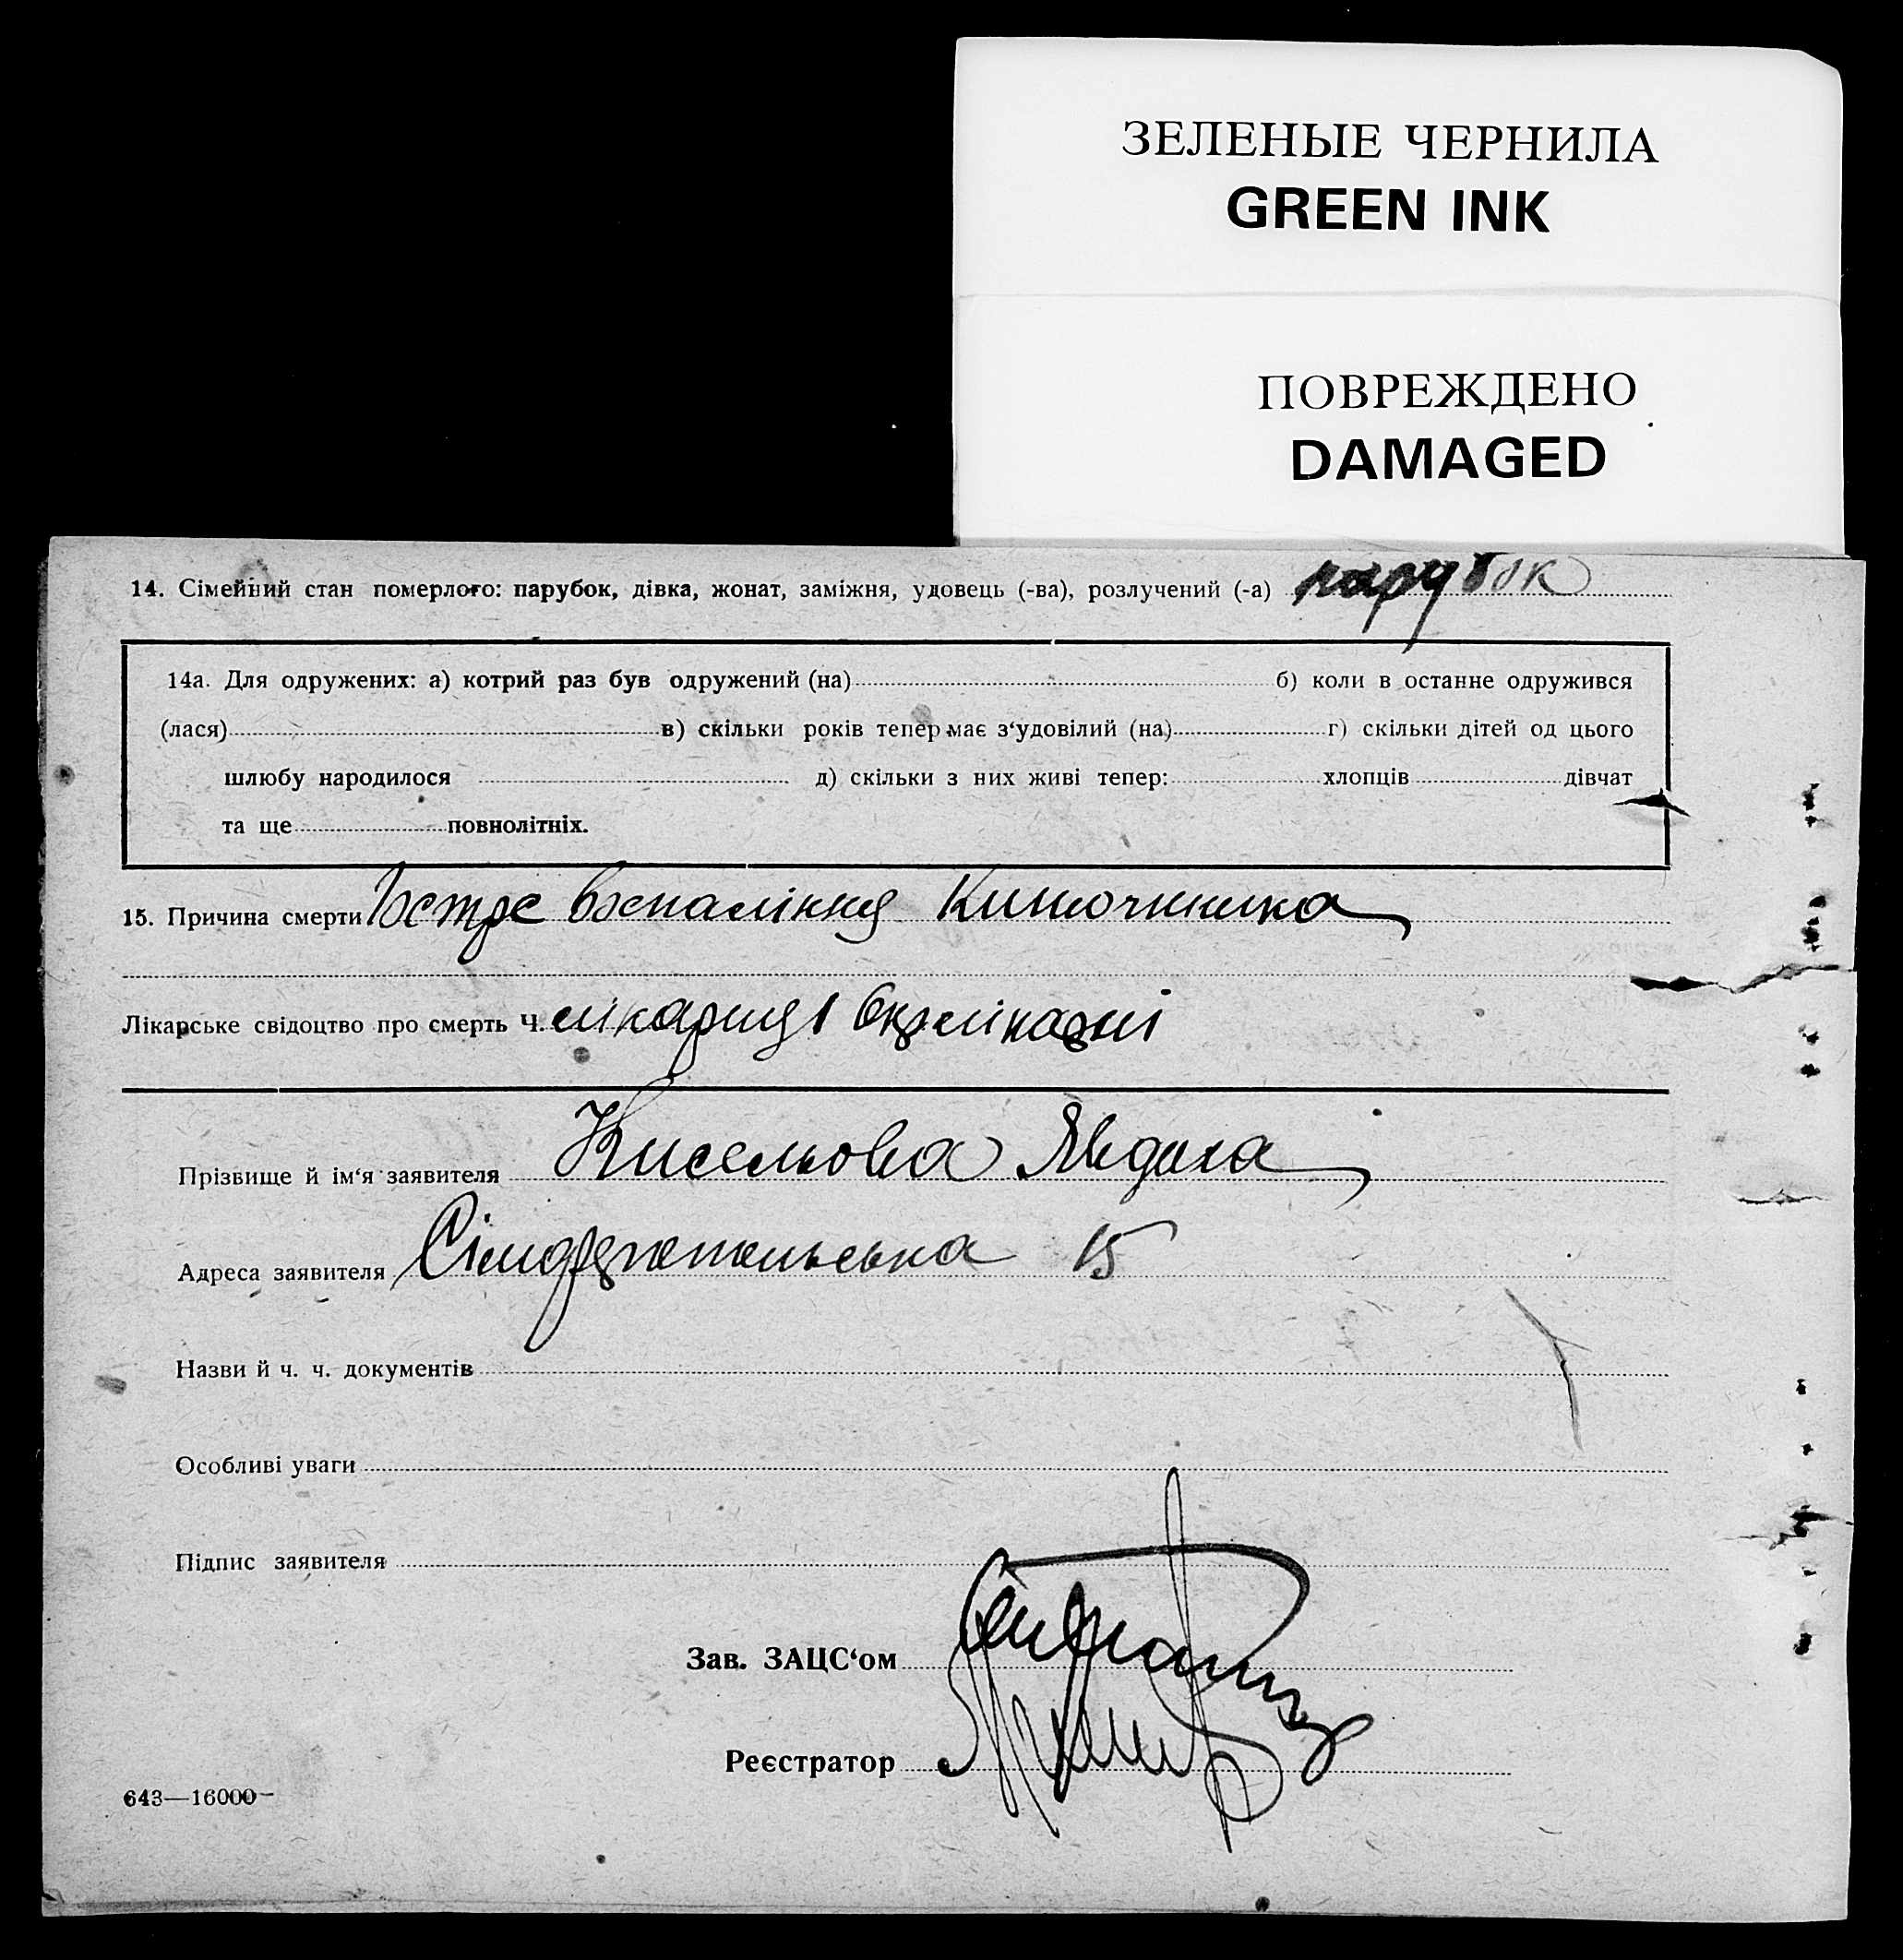 ЗЕЛЕНЫЕ ЧЕРНИЛА
GREEN INK
ПОВРЕЖДЕНО
DAMAGED
14. Сімейний стан померлого: парубок, дівка, жонат, заміжня, удовець (-ва), розлучений (-а) парубок
14а. Для одружених: а) котрий раз був одружений (на) б) коли в останнє одружився
(лася) в) скільки років тепер має з‘удовілий (на) г) скільки дітей од цього
шлюбу народилося д) скільки з них живі тепер: хлопців дівчат
та ще повнолітніх.
15. Причина смерти Гостре воспаління Кишочника
Лікарське свідоцтво про смерть Ч. лікарня
Прізвище й ім‘я заявителя Кисельова Явдоха
Адреса заявителя Сімферопольська 15
Назви й ч. ч. документів
Особливі уваги
Підпис заявителя
Зав. ЗАЦС‘ом
Реєстратор
643—16000